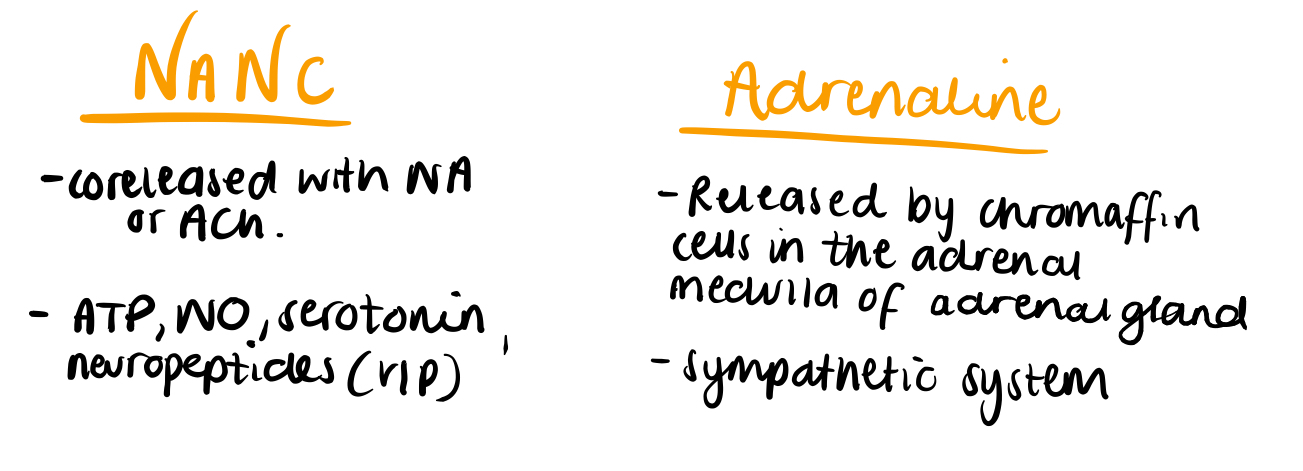 NANC
-coreleased with NA
or ACh.
- ATP, NO, serotonin,
neuropeptides (VIP)
Adrenaline
-Released by chromaffin
cells in the adrenal
medulla of adrenal gland
-sympathetic system